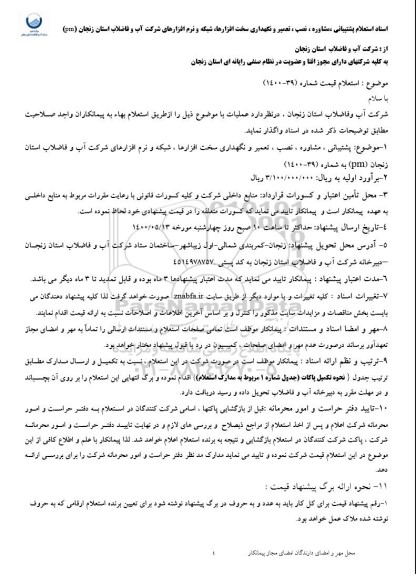 اسناد استعلام پشتیبانی ،مشاوره ، نصب ، تعمیر و نگهداری سخت افزارها، شبکه و نرم افزارهای شرکت آب و فاضلاب استان زنجان (pm)
از : شرکت آب و فاضلاب استان زنجان
به کلیه شرکتهای دارای مجوز افتا و عضویت در نظام صنفی رایانه ای استان زنجان
موضوع : استعلام قیمت شماره (۳۹-۱۴۰۰)
با سلام
شرکت آب وفاضلاب استان زنجان ، درنظردارد عملیات با موضوع ذیل را ازطریق استعلام بهاء به پیمانکاران واجد صلاحیت
مطابق توضیحات ذکر شده در اسناد واگذار نمایند.
۱-موضوع: پشتیبانی ، مشاوره ، نصب ، تعمیر و نگهداری سخت افزارها ، شبکه و نرم افزارهای شرکت آب و فاضلاب استان
زنجان (pm) به شماره (۳۹-۱۴۰۰)
۲-برآورد اولیه به ریال: ۳/۱۰۰/۰۰۰/۰۰۰ ریال
۳- محل تأمین اعتبار و کسورات قرارداد: منابع داخلی شرکت و کلیه کسورات قانونی با رعایت مقررات مربوط به منابع داخلی
به عهده پیمانکار است و پیمانکار تایید می نماید که کسورات متعلقه را در قیمت پیشنهادی خود لحاظ نموده است.
۴-تاریخ ارسال پیشنهاد: حداکثر تا ساعت ۱۰ صبح روز چهارشنبه مورخه ۱۴۰۰/۰۵/۱۳
۵- آدرس محل تحویل پیشنهاد: زنجان-کمربندی شمالی-اول زیباشهر-ساختمان ستاد شرکت آب و فاضلاب استان زنجان
-دبیرخانه شرکت آب و فاضلاب استان زنجان به کد پستی ۴۵۱۴۹۷۸۷۵۷
۶-مدت اعتبار پیشنهاد : پیمانکار تایید می نماید که مدت اعتبار پیشنهادها ۳ ماه بوده و قابل تمدید تا ۳ ماه دیگر می باشد.
۷-تغییرات اسناد : کلیه تغییرات و یا موارد دیگر از طریق سایت znabfa.ir صورت خواهد گرفت لذا کلیه پیشنهاد دهندگان می
بایست بخش مناقصات و مزایدات سایت مذکور را کنترل و بر اساس آخرین اطلاعات و اصلاحات نسبت به ارائه قیمت اقدام نمایند.
۸-مهر و امضا اسناد و مستندات : پیمانکار موظف است تمامی صفحات استعلام و مستندات ارسالی را تماماً به مهر و امضای مجاز
تعهدآور برساند درصورت عدم مهر و امضای صفحات ، کمیسیون در رد یا قبول پیشنهاد مختار خواهد بود.
۹-ترتیب و نظم ارائه اسناد : پیمانکار موظف است در صورت شرکت در این استعلام ، نسبت به تکمیل و ارسال مدارک مطابق
ترتیب جدول ( نحوه تکمیل پاکات (جدول شماره ۱ مربوط به مدارک استعلام)) اقدام نموده و برگ انتهایی این استعلام را بر روی آن بچسباند
و در مهلت مقرر به دبیرخانه آب و فاضلاب تحویل داده و رسید دریافت دارد.
۱۰-تایید دفتر حراست و امور محرمانه :قبل از بازگشایی پاکتها ، اسامی شرکت کنندگان در استعلام به دفتر حراست و امور
محرمانه شرکت اعلام و پس از اخذ استعلام از مراجع ذیصلاح و بررسی های لازم و در نهایت تایید دفتر حراست و امور محرمانه
شرکت ، پاکت شرکت کنندگان در استعلام بازگشایی و نتیجه به برنده استعلام اعلام خواهد شد. لذا پیمانکار با علم و اطلاع کافی از این
موضوع در این استعلام قیمت شرکت نموده و تایید می نماید مدارک مد نظر دفتر حراست و امور محرمانه شرکت را برای بررسی ارائه
دهد.
۱۱- نحوه ارائه برگ پیشنهاد قیمت :
۱-رقم پیشنهاد قیمت برای کل کار باید به عدد و به حروف در برگ پیشنهاد نوشته شود برای تعیین برنده استعلام ارقامی که به حروف
نوشته شده ملاک عمل خواهد بود.
محل مهر و امضای دارندگان امضای مجاز پیمانکار
۱